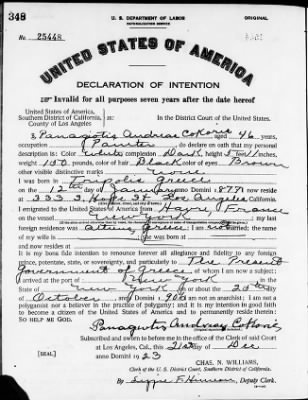 348
U. S. DEPARTMENT OF LABOR
NATURALIZATION SERVICE
ORIGINAL
No. 25448
UNITED STATES OF AMERICA
DECLARATION OF INTENTION
Invalid for all purposes seven years after the date hereof
United States of America,
Southern District of California, ss: In the District Court of the United States.
County of Los Angeles
I, Panagotis Andreas aged 46 years,
occupation Painter, do declare on oath that my personal
description is: Color White, complexion Dark, height 5 feet inches,
weight 150 pounds, color of hair Black, color of eyes Brown
other visible distinctive marks none
I was born in Greece
on the 12th day of January, anno Domini 1877; I now reside
at 333 S. Hope St. Los Angeles, California
I emigrated to the United States of America from Havre, France
my last
foreign residence was Athens, Greece; I am not married; the name
of my wife is; she was born at
and now resides at
It is my bona fide intention to renounce forever all allegiance and fidelity to any foreign
prince, potentate, state, or sovereignty, and particularly to The Present
Government of Greece, of whom I am now a subject;
I arrived at the port of New York, in the
State of New York, on or about the 20th day
of October, anno Domini; I am not an anarchist; I am not a
polygamist nor a believer in the practice of polygamy; and it is my intention in good faith
to become a citizen of the United States of America and to permanently reside therein:
SO HELP ME GOD.
Subscribed and sworn to before me in the office of the Clerk of said Court
at Los Angeles, Cal., this 21st day of Dec
[SEAL] anno Domini 1923
CHAS. N. WILLIAMS,
Clerk of the U. S. District Court, Southern District of California.
By, Deputy Clerk.